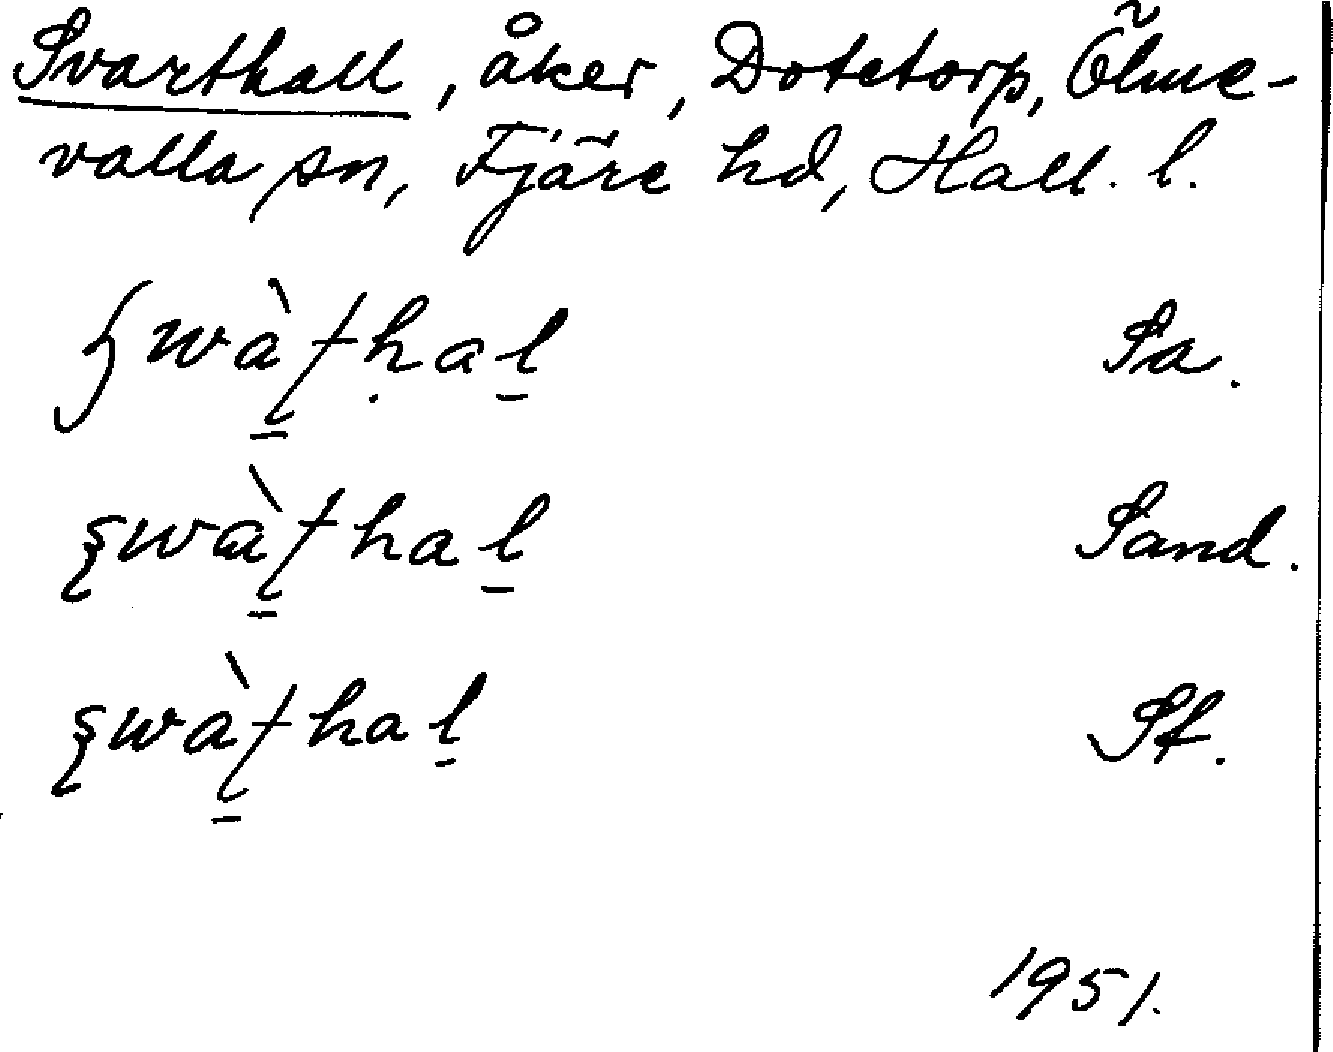 Svarthall, åker, Dotetorp, Ölme-
valla sn, Fjäre hd, Hall. l.
ʂwàʈḥaḻ Sa.
ʂwàʈhaḻ Sand.
ʂwàʈhaḻ St.
1951.